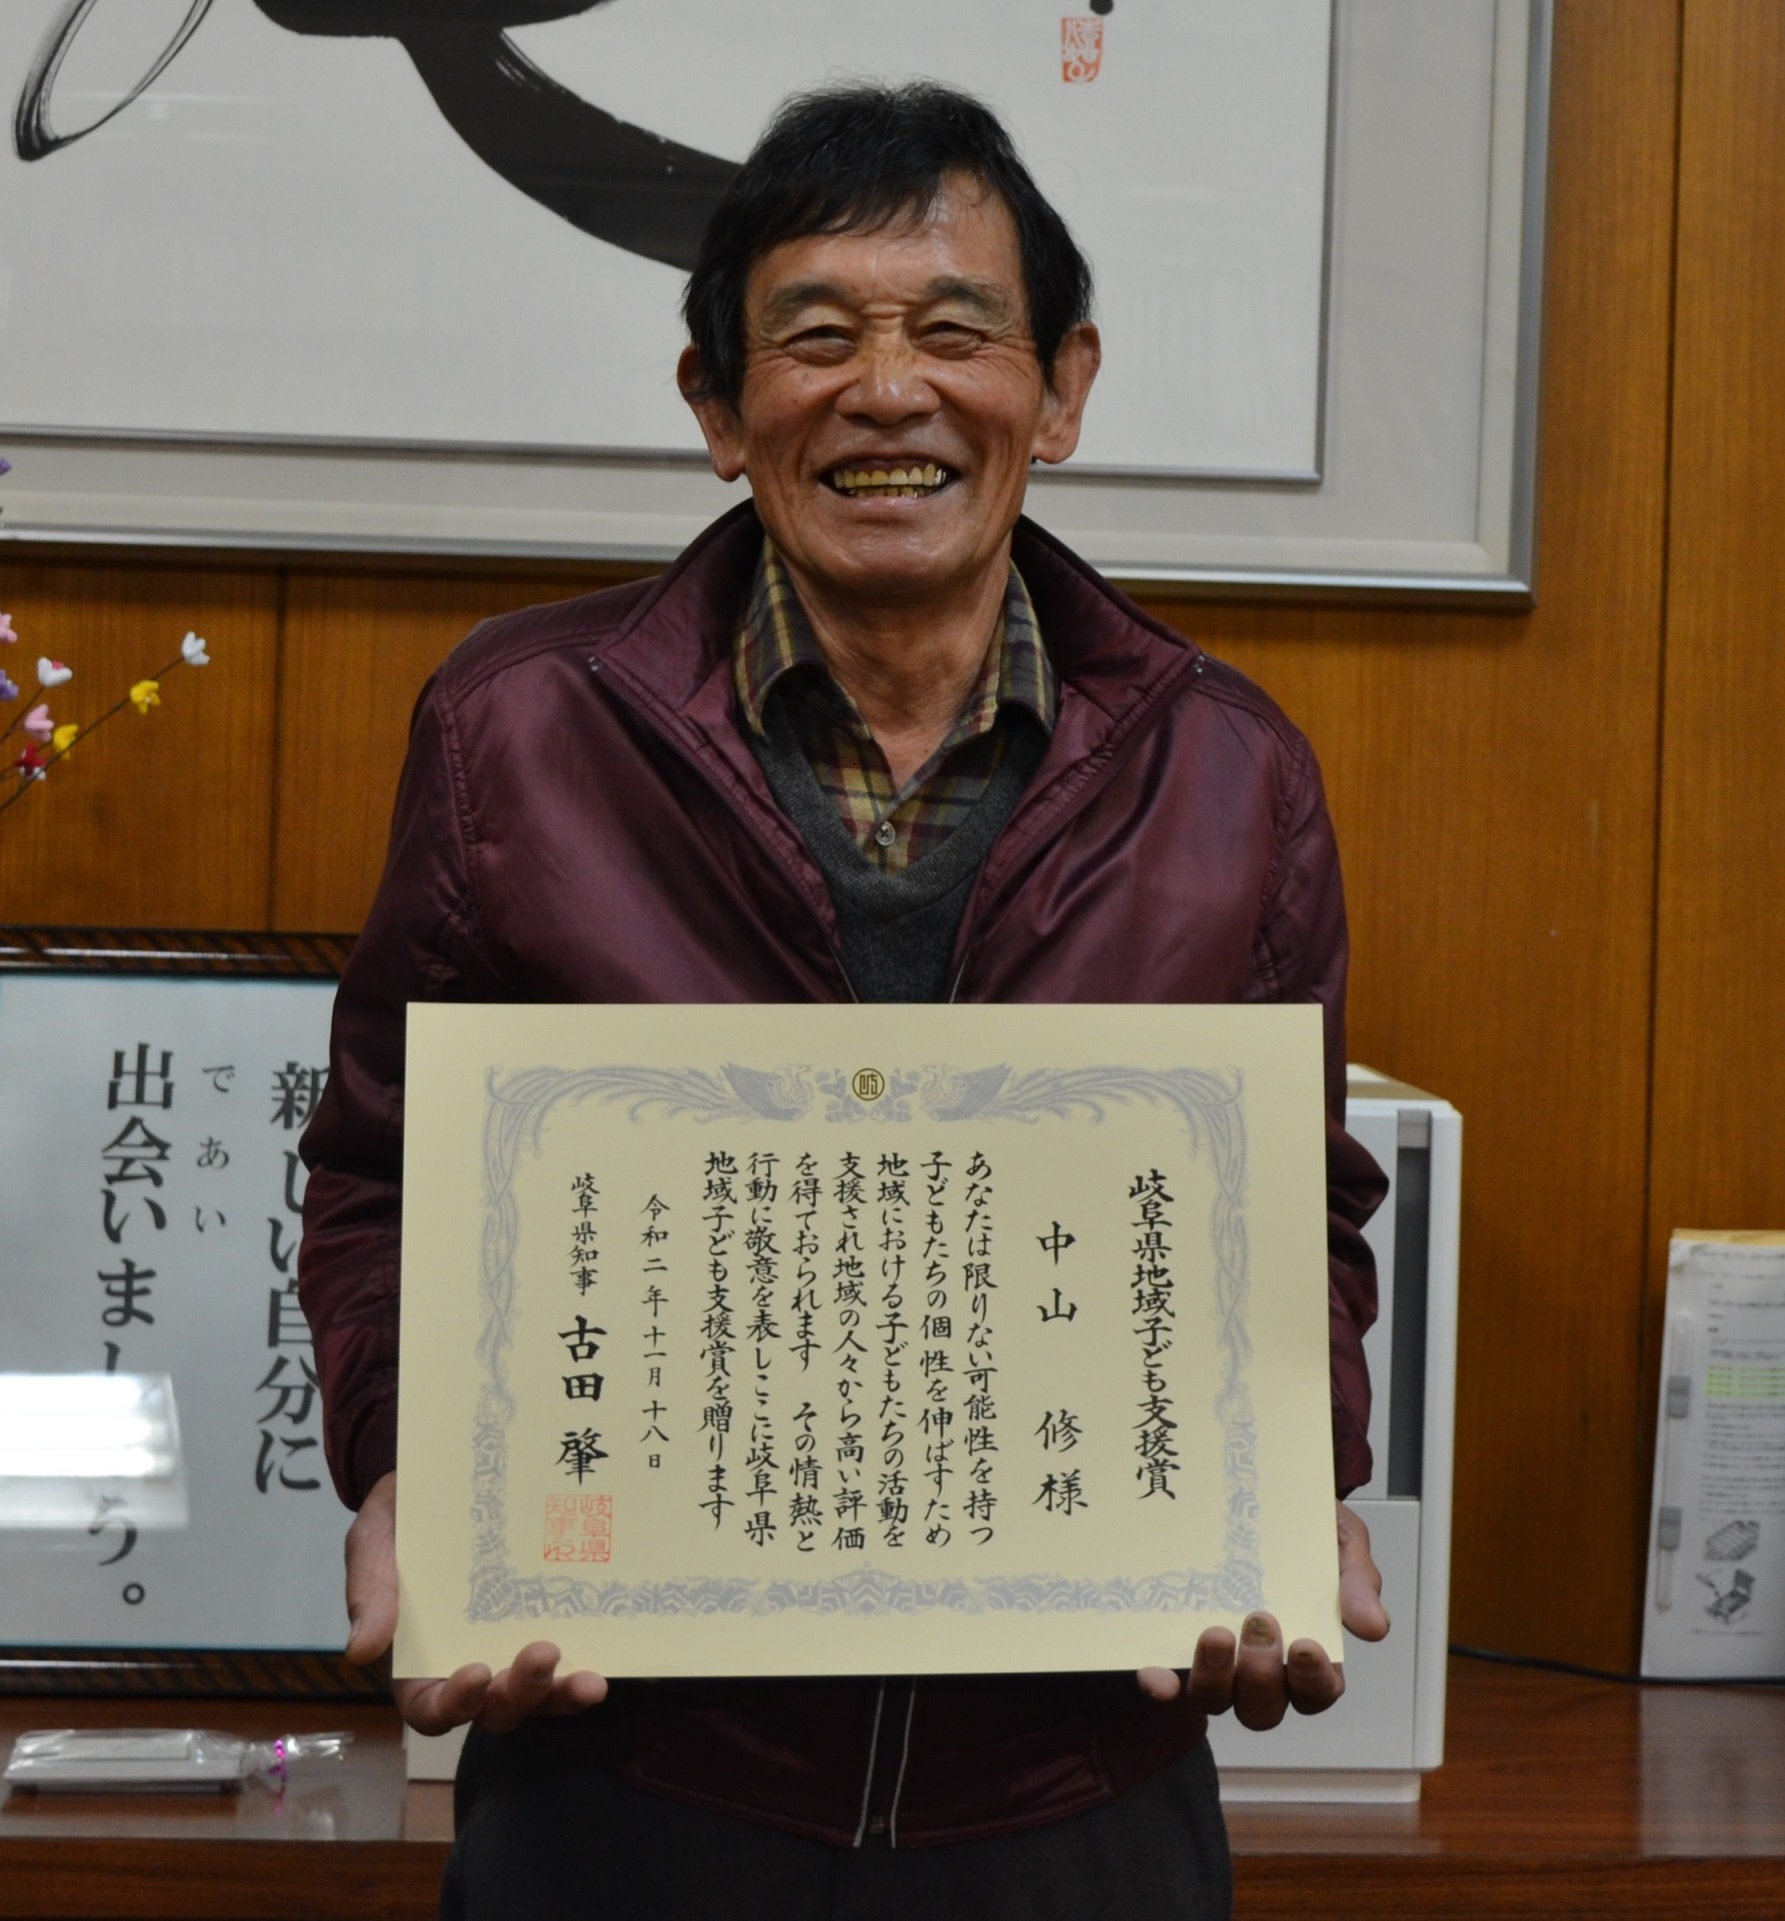 岐阜県地域子ども支援賞
中山　修様
あなたは限りない可能性を持つ
子どもたちの個性を伸ばすため
地域における子どもたちの活動を
支援され地域の人々から高い評価
を得ておられます　その情熱と
行動に敬意を表しここに岐阜県
地域子ども支援賞を贈ります
令和二年十一月十八日
岐阜県知事　古田　肇
岐阜県
知事之印
新しい自分に
であい
出会いましょう。